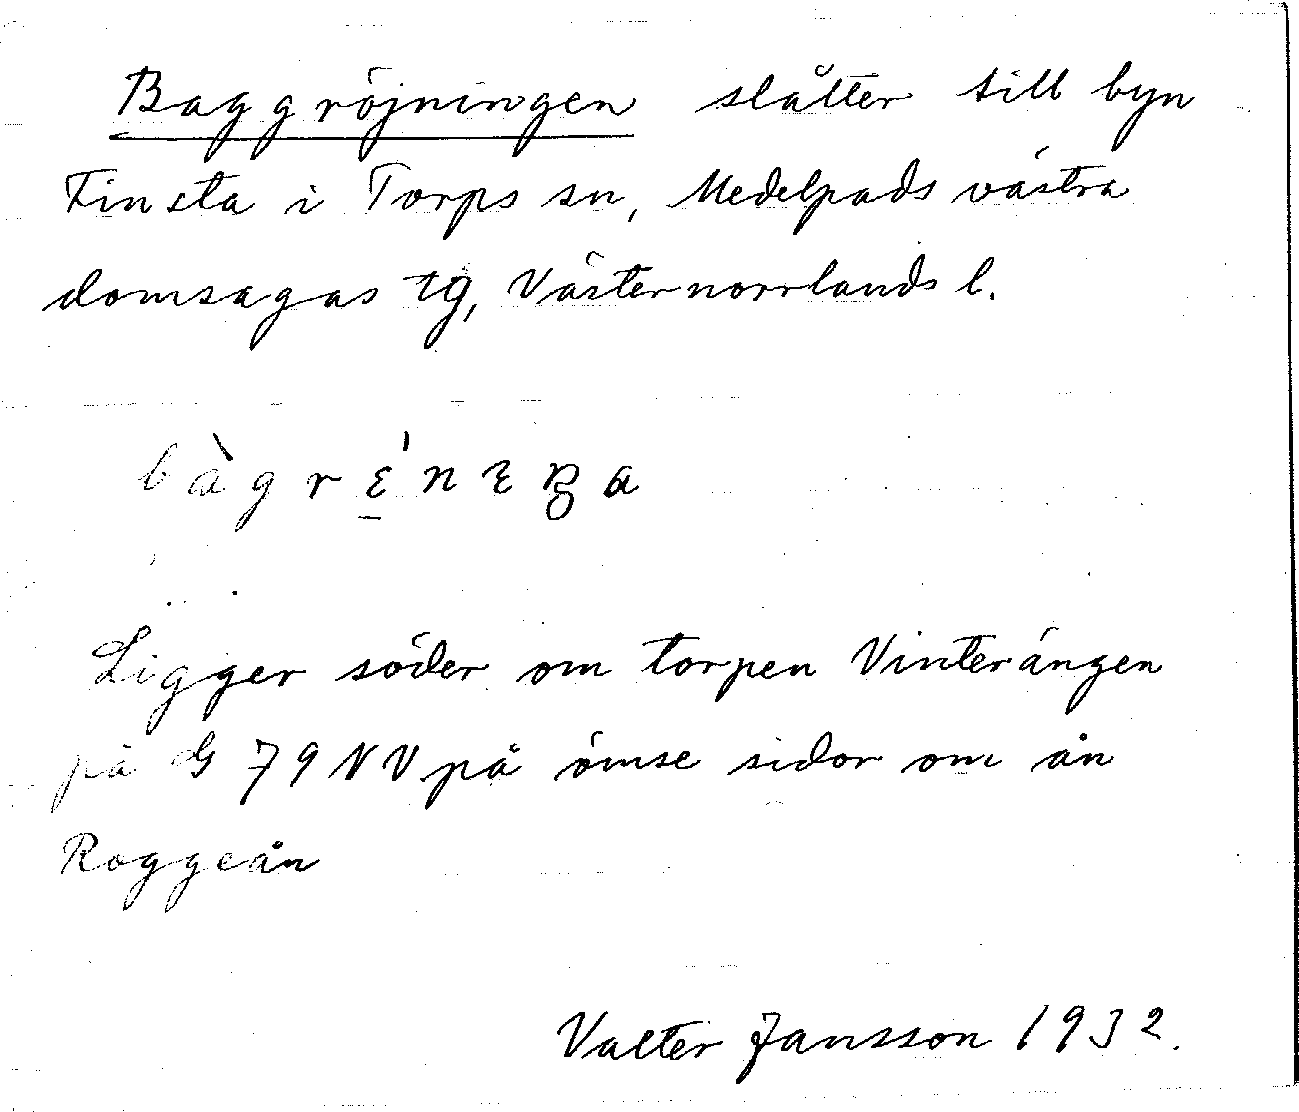 Baggröjningen slåtter till byn
Finsta i Torps sn, Medelpads västra
domsagas tg, Västernorrlands l.
bàgrέ̠́nɛŋa
Ligger söder om torpen Vinterängen
på G 79 NV på ömse sidor om ån
Roggeån
Valter Jansson 1932.